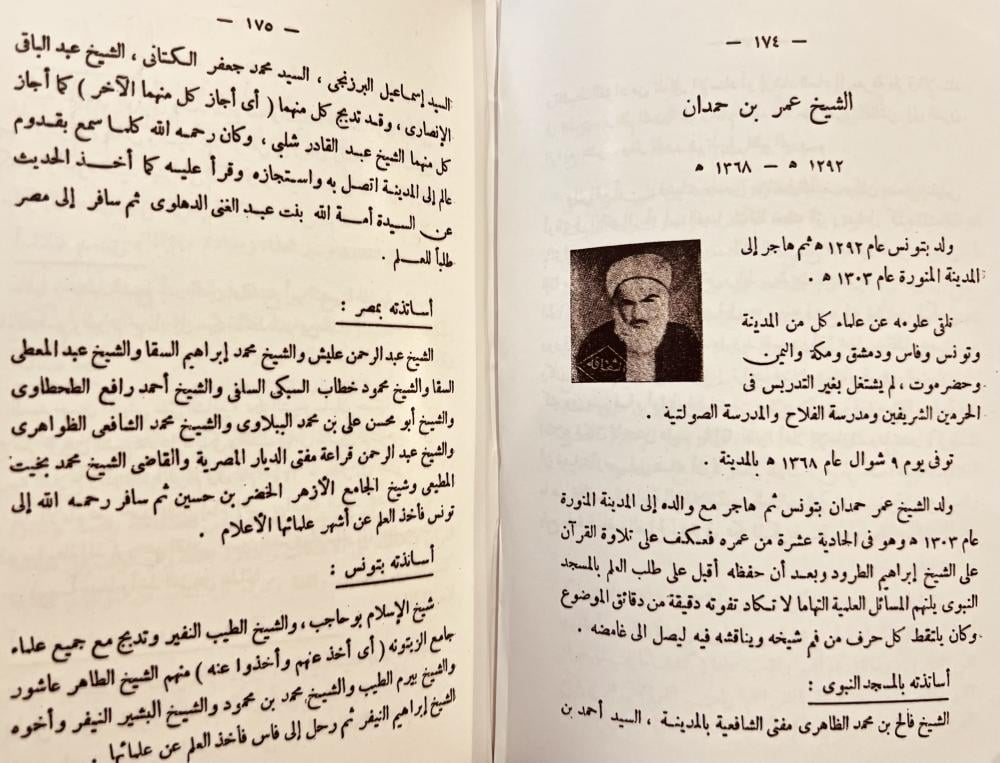 — ١٧٤ —
الشيخ عمر بن حمدان
١٢٩٢ ه — ١٣٦٨ ه
ولد بتونس عام ١٢٩٢ ه ثم هاجر إلى
المدينة المنورة عام ١٣٠٣ ه .
تلقى علومه عن علماء كل من المدينة
وتونس وفاس ودمشق ومكة واليمن
وحضرموت ، لم يشتغل بغير التدريس فى
الحرمين الشريفين ومدرسة الفلاح والمدرسة الصولتية .
توفى يوم ٩ شوال عام ١٣٦٨ ه بالمدينة .
ولد الشيخ عمر حمدان بتونس ثم هاجر مع والده إلى المدينة المنورة
عام ١٣٠٣ ه وهو فى الحادية عشرة من عمره فعكف على تلاوة القرآن
على الشيخ إبراهيم الطرود وبعد أن حفظه أقبل على طلب العلم بالمسجد
النبوى يلتهم المسائل العلمية التهاما لا تكاد تفوته دقيقة من دقائق الموضوع
وكان يلتقط كل حرف من فم شيخه ويناقشه فيه ليصل الى غامضه .
أساتذته بالمسجد النبوى :
الشيخ فالح بن محمد الظاهرى مفتى الشافعية بالمدينة ، السيد أحمد بن
— ١٧٥ —
السيد إسماعيل البرزنجى ، السيد محمد جعفر الكتانى ، الشيخ عبد الباقى
الإنصارى ، وقد تدبج كل منهما ( أى أجاز كل منهما الآخر ) كما أجاز
كل منهما الشيخ عبد القادر شلبى ، وكان رحمه الله كلما سمع بقدوم
عالم إلى المدينة اتصل به واستجازه وقرأ عليه كما أخذ الحديث
عن السيدة أمة الله بنت عبد الغنى الدهلوى ثم سافر إلى مصر
طلباً للعلم .
أساتذته بمصر :
الشيخ عبد الرحمن عليش والشيخ محمد إبراهيم السقا والشيخ عبد المعطى
السقا والشيخ محمود خطاب السبكى السلفى والشيخ أحمد رافع الطحطاوى
والشيخ أبو محسن على بن محمد الببلاوى والشيخ محمد الشافعى الظواهرى
والشيخ عبد الرحمن قراعة مفتى الديار المصرية والقاضى الشيخ محمد بخيت
المطيعى وشيخ الجامع الأزهر الخضر بن حسين ثم سافر رحمه الله إلى
تونس فأخذ العلم عن أشهر علمائها الأعلام .
أساتذته بتونس :
شيخ الإسلام بوحاجب ، والشيخ الطيب النفير وتدبج مع جميع علماء
جامع الزيتونه ( أى أخذ عنهم وأخذوا عنه ) منهم الشيخ الطاهر عاشور
والشيخ بيرم الطيب والشيخ محمد بن محمود والشيخ البشير النيفر وأخوه
الشيخ إبراهيم النيفر ثم رحل إلى فاس فأخذ العلم عن علمائها .